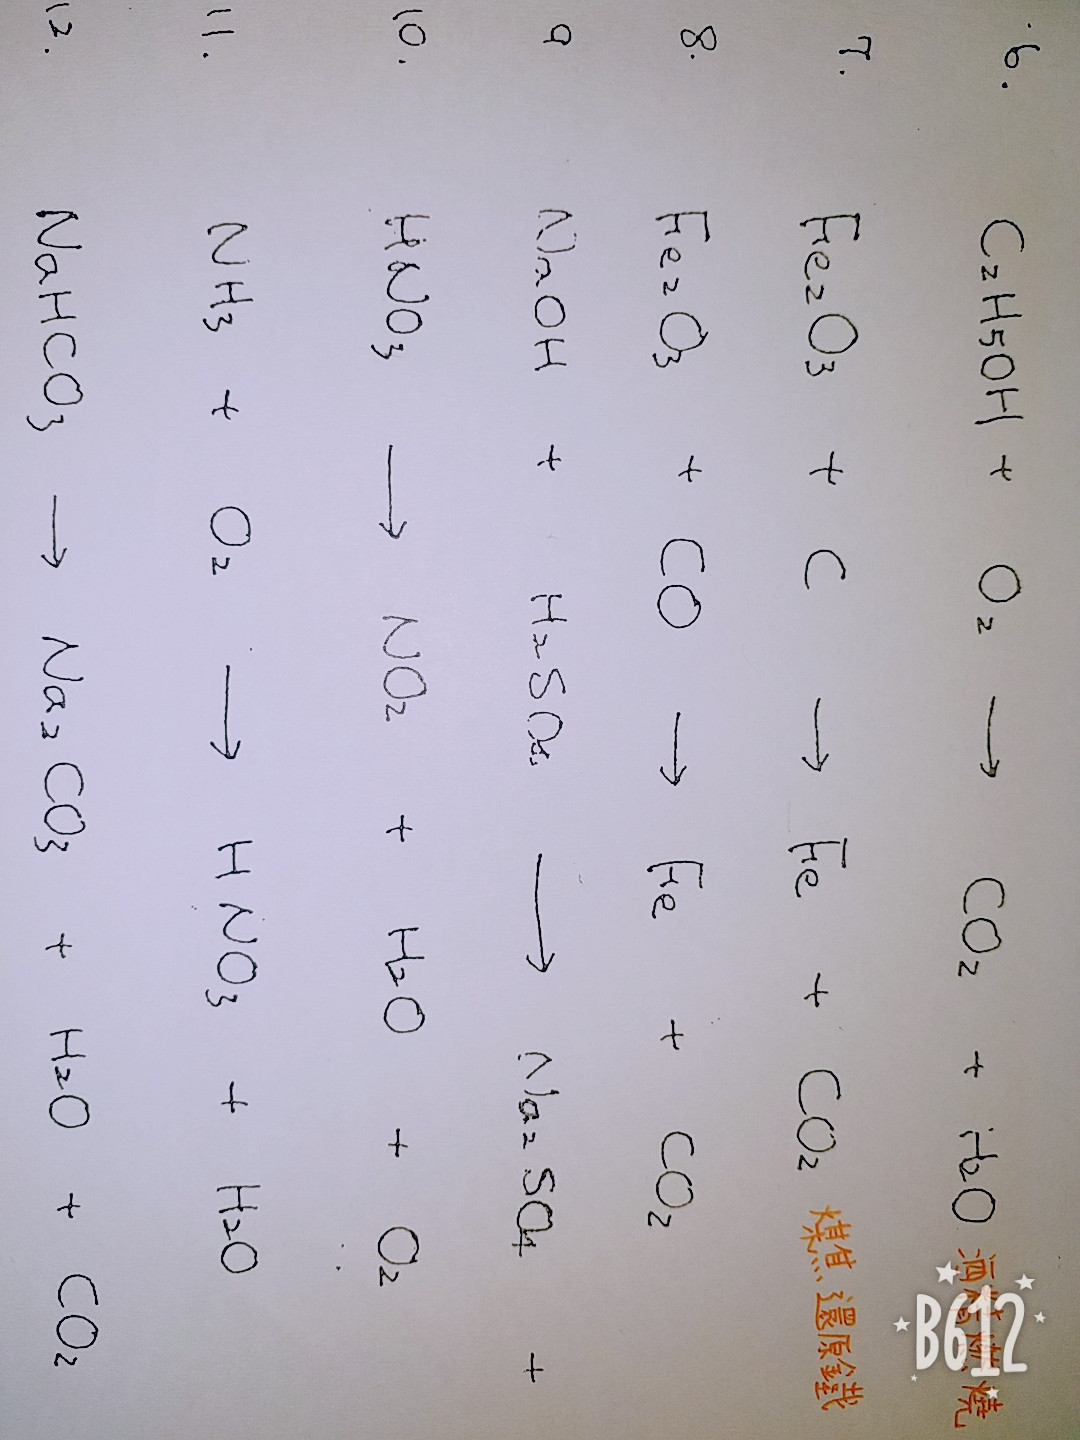 6. C₂H5OH + O₂ → CO₂ + H₂O 酒精燃燒
7. Fe₂O₃ + C → Fe + CO₂ 煤焦還原鐵
8. Fe₂O₃ + CO → Fe + CO₂
9 NaOH + H₂SO₄ → Na₂SO₄ +
10. HNO₃ → NO₂ + H₂O + O₂
11. NH₃ + O₂ → HNO₃ + H₂O
12. NaHCO₃ → Na₂CO₃ + H₂O + CO₂
B612